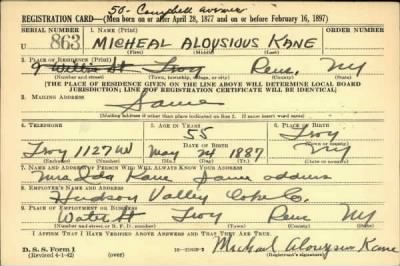 50- Campbell avenue
REGISTRATION CARD—(Men born on or after April 28, 1877 and on or before February 16, 1897)
SERIAL NUMBER 1. NAME (Print) ORDER NUMBER
U 863 MICHEAL ALOYSIOUS KANE
(First) (Middle) (Last)
2. PLACE OF RESIDENCE (Print)
9 Willis St Troy Renс. NY
(Number and street) (Town, township, village, or city) (County) (State)
[THE PLACE OF RESIDENCE GIVEN ON THE LINE ABOVE WILL DETERMINE LOCAL BOARD
JURISDICTION; LINE 2 OF REGISTRATION CERTIFICATE WILL BE IDENTICAL]
3. MAILING ADDRESS
Same
[Mailing address if other than place indicated on line 2. If same insert word same]
4. TELEPHONE 5. AGE IN YEARS 6. PLACE OF BIRTH
55 Troy
DATE OF BIRTH
Troy 1127 W May 24 1887 NY
(Exchange) (Number) (Mo.) (Day) (Yr.) (State or country)
7. NAME AND ADDRESS OF PERSON WHO WILL ALWAYS KNOW YOUR ADDRESS
Mrs Ida Kane Same address
8. EMPLOYER'S NAME AND ADDRESS
Hudson Valley Coke Co.
9. PLACE OF EMPLOYMENT OR BUSINESS
Water St Troy Renc NY
(Number and street or R. F. D. number) (Town) (County) (State)
I AFFIRM THAT I HAVE VERIFIED ABOVE ANSWERS AND THAT THEY ARE TRUE.
D. S. S. Form 1
(Revised 4-1-42) (over)
Micheal Aloysius Kane
(Registrant's signature)